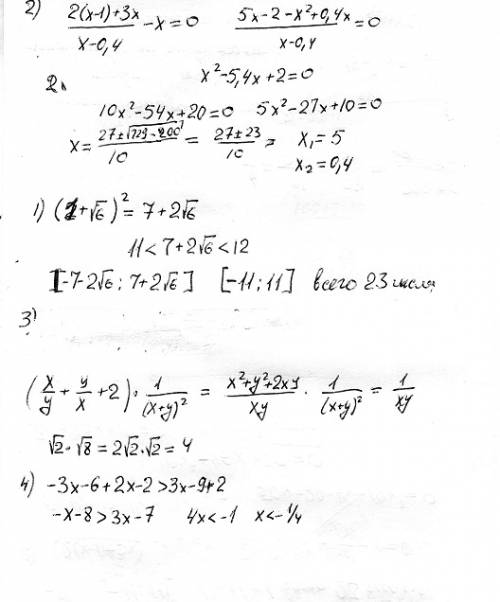 2) (2(x-1)+3x)/(x-0,4) - x = 0    (5x-2-x²+0,4x)/(x-0,4) = 0
x²-5,4x+2=0
2.
10x²-54x+20=0    5x²-27x+10=0
x = (27±√(729-200))/10 = (27±23)/10 = x₁=5
x₂=0,4
1) (1+√6)² = 7+2√6
11 < 7+2√6 < 12
[-7-2√6; 7+2√6]    [-11; 11] всего 23 числа
3)
(x/y + y/x + 2) · 1/(x+y)² = (x²+y²+2xy)/(xy) · 1/(x+y)² = 1/(xy)
√2·√8 = 2√2·√2 = 4
4) -3x-6+2x-2>3x-9+2
-x-8>3x-7    4x<-1    x<-1/4